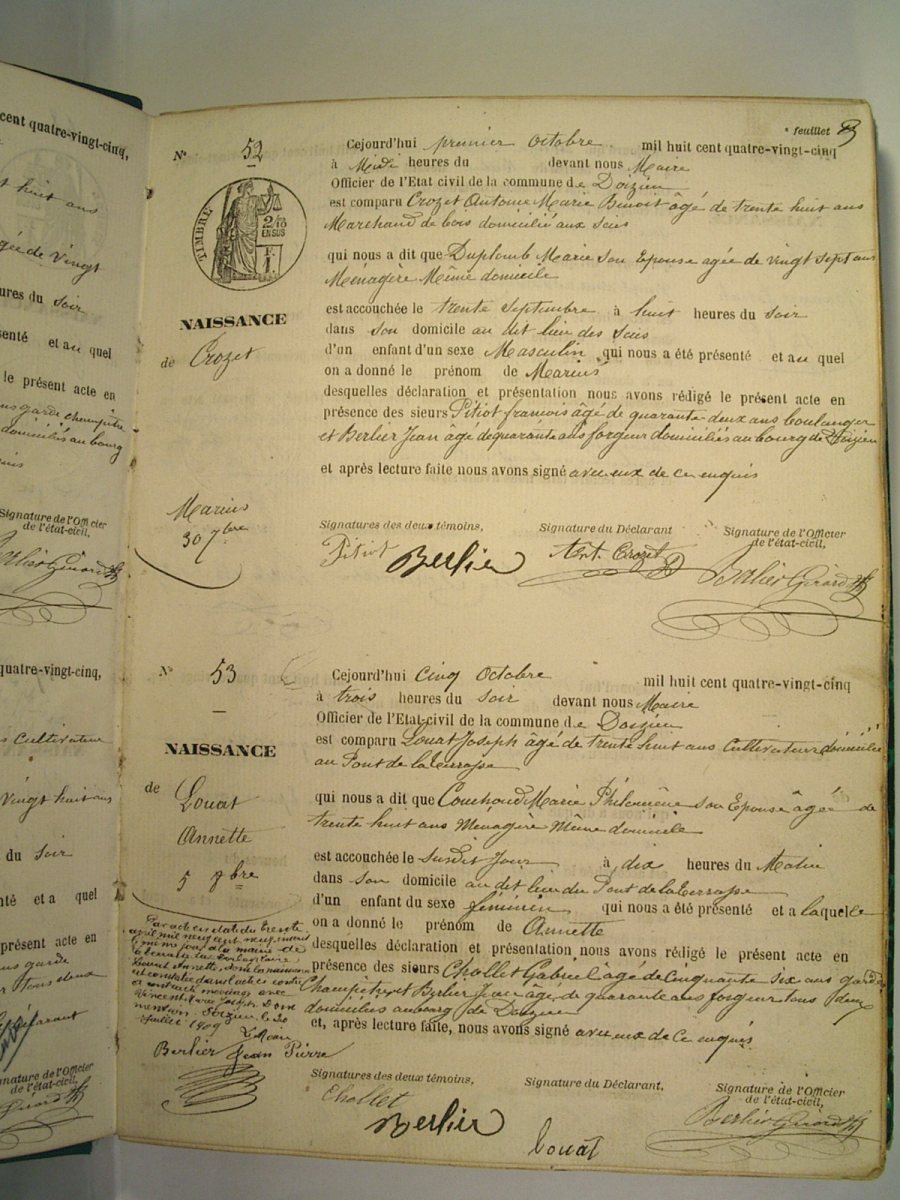 cent quatre-vingt-cinq,
huit ans
agée de Vingt
ures du soir
senté et au quel
le présent acte en
garde champêtre
domiciliés au bourg
Signature de l'Officier
de l'état-civil,
quatre-vingt-cinq,
Cultivateur
Vingt huit ans
du soir
nté et a quel
présent acte en
garde
tous deux
Déclarant
Signature de l'Officier
de l'état-civil,
feuillet
N° 52
Cejourd'hui premier Octobre mil huit cent quatre-vingt-cinq
à Midi heures du devant nous Maire
Officier de l'Etat civil de la commune de Doizieu
est comparu Crozet Antoine Marie Benoit âgé de trente huit ans
Marchand de bois domicilié aux Scies
TIMBRE
2/10
EN SUS
qui nous a dit que Duplomb Marie son Epouse agée de vingt sept ans
Menagère Même domicile
NAISSANCE
de Crozet
est accouchée le trente Septembre à huit heures du soir
dans son domicile au dit lieu des Scies
d'un enfant d'un sexe Masculin qui nous a été présenté et au quel
on a donné le prénom de Marius
desquelles déclaration et présentation nous avons rédigé le présent acte en
présence des sieurs Pitiot francois âgé de quarante deux ans boulanger
et Berlier Jean âgé de quarante ans forgeur domiciliés au bourg de Doizieu
et après lecture faite nous avons signé avec eux de ce enquis
Marius
30 7bre
Signatures des deux témoins,
Signature du Déclarant
Signature de l'Officier
de l'état-civil,
Pitiot
Berlier
Ant. Crozet
Berlier Girard
N° 53
Cejourd'hui Cinq Octobre mil huit cent quatre-vingt-cinq
à trois heures du soir devant nous Maire
Officier de l'Etat-civil de la commune de Doizieu
est comparu Louat Joseph âgé de trente huit ans Cultivateur domicilié
au Pont de la terrasse
NAISSANCE
de Louat
Annette
5 8bre
qui nous a dit que Couchoud Marie Philomène son Epouse âgée de
trente huit ans Menagère Même domicile
est accouchée le susdit Jour à dix heures du Matin
dans son domicile au dit lieu du Pont de la terrasse
d'un enfant du sexe féminin qui nous a été présenté et a laquelle
on a donné le prénom de Annette
desquelles déclaration et présentation nous avons rédigé le présent acte en
présence des sieurs Chollet Gabriel âgé de Cinquante six ans garde
Champêtre et Berlier Jean âgé de quarante ans forgeur tous deux
domiciliés au bourg de Doizieu
et, après lecture faite, nous avons signé avec eux de Ce enquis
Par acte en date du trente
avril mil neuf cent neuf
le même jour à la mairie de
la terrasse
Louat Annette, dont la naissance
est constatée dans l'acte ci-contre
a contracté mariage avec
Vincent Marie Joseph
mention. Doizieu le 20
Juillet 1909
Le Maire
Berlier Jean Pierre
Signatures des deux témoins,
Signature du Déclarant,
Signature de l'Officier
de l'état-civil,
Chollet
Berlier
Louat
Berlier Girard